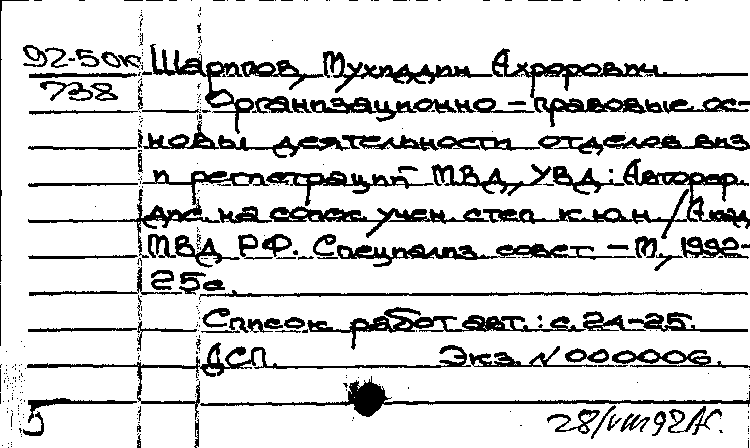 92-50к Шарипов, Мухиддин Ахрорович.
738 Организационно-правовые ос-
новы деятельности отделов виз
и регистраций МВД, УВД: Автореф.
дис. на соиск. учен. степ. к.ю.н. / Акад.
МВД РФ. Специализ. совет. - М., 1992-
25с.
Список работ авт.: с. 24-25.
ДСП. Экз. N 000006.
5 28/VIII 92 АС.